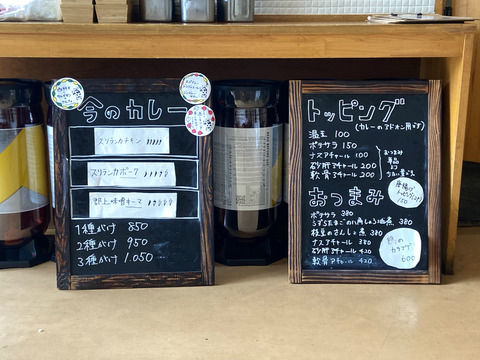 今のカレー
スリランカチキン
スリランカポーク
郡上味噌キーマ
1種がけ 850
2種がけ 950
3種がけ 1,050
トッピング
(カレーのアドオン用です)
温玉 100
ポテサラ 150
ナスアチャール 100
砂肝アチャール 200
軟骨アチャール 200
おつまみ
単品
おつまみ
ポテサラ 380
うずらたまごの八角しょうゆ煮 380
枝豆のさんしょ煮 380
ナスアチャール 380
砂肝アチャール 420
軟骨アチャール 420
600